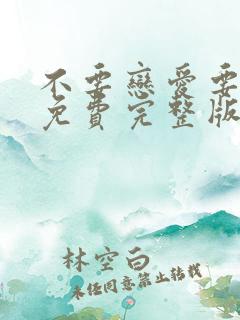 不要戀愛要
免費完整版
林空白
未经同意禁止转载